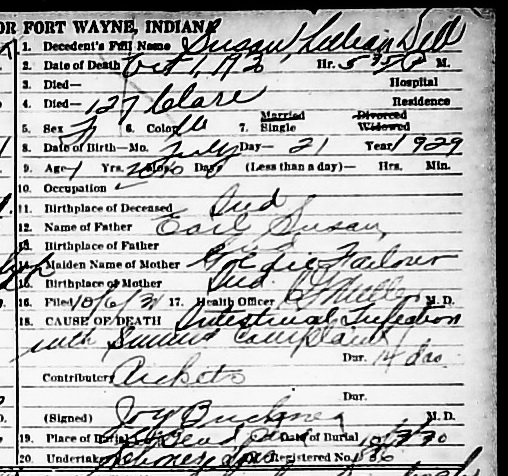 OR FORT WAYNE, INDIANA
1. Decedent's Full Name Susan, Lillian Dell
2. Date of Death Oct 1, 1930 Hr. 5 M.
3. Died— Hospital
4. Died— 127 Clare Residence
5. Sex F 6. Color W 7. Married Single Divorced Widowed
8. Date of Birth—Mo. July Day— 21 Year 1929
9. Age— 1 Yrs. 2 Mos. 10 Days (Less than a day)— Hrs. Min.
10. Occupation
11. Birthplace of Deceased Ind
12. Name of Father Earl Susan
13. Birthplace of Father Ind
14. Maiden Name of Mother Goldie
15. Birthplace of Mother Ind
16. Filed 10/6/30 17. Health Officer M. D.
18. CAUSE OF DEATH Intestinal Infection
with Summer Complaint
Dur. 14 das
Contributory Rickets
Dur.
(Signed) Joy Buckner M. D.
19. Place of Burial Date of Burial
20. Undertaker Registered No.